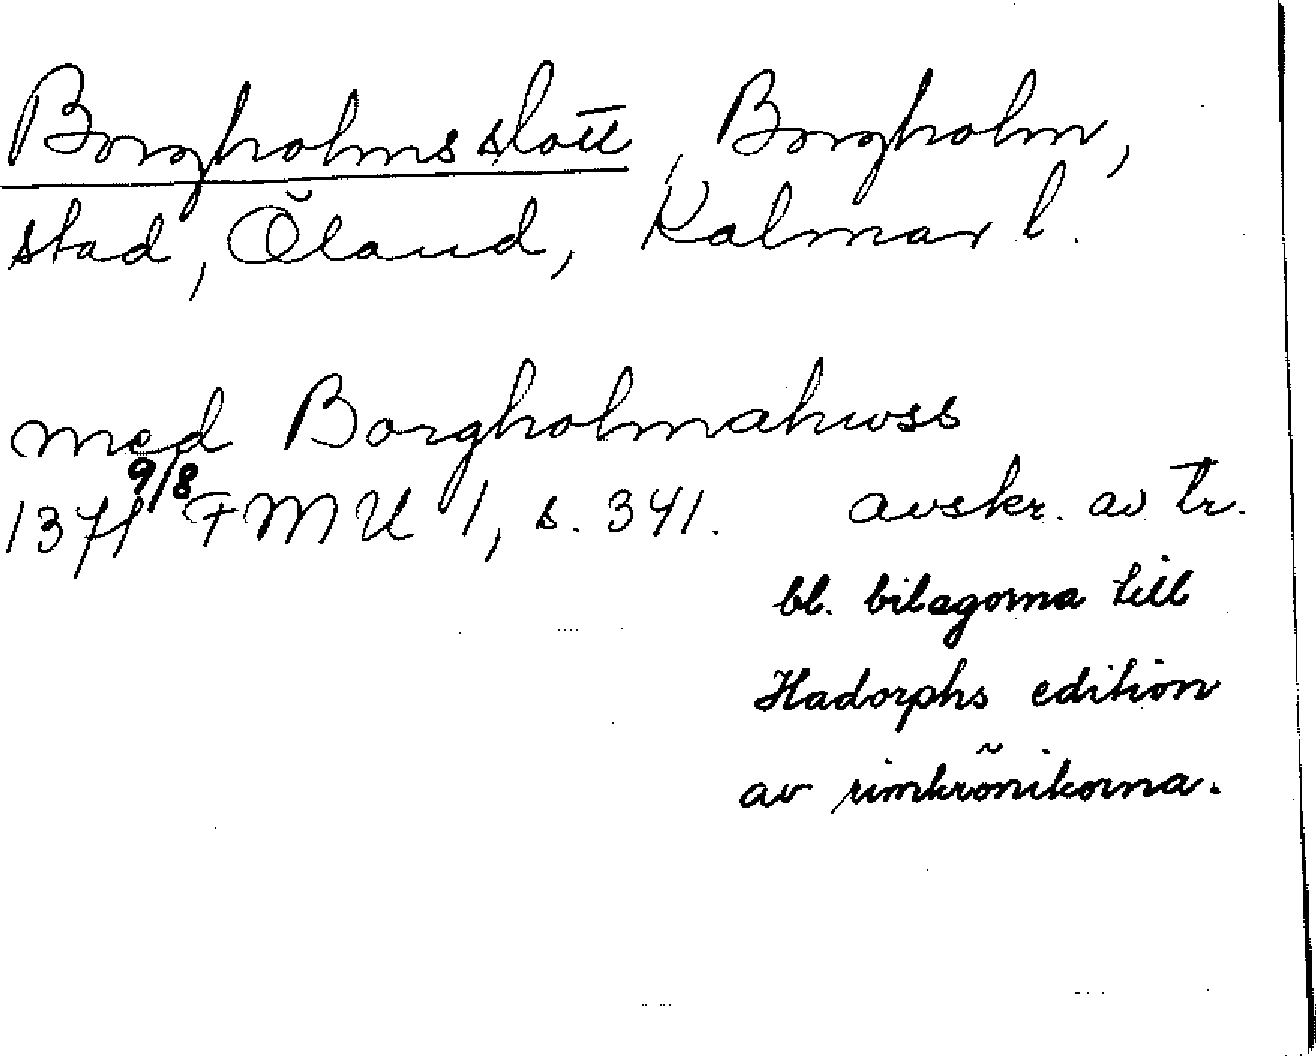 Borgholms slott, Borgholm,
stad, Öland, Kalmar l.
med Borgholmahwss
1371 9/8 FMU 1, s. 341. avskr. av tr.
bl. bilagorna till
Hadorphs edition
av rimkrönikorna.